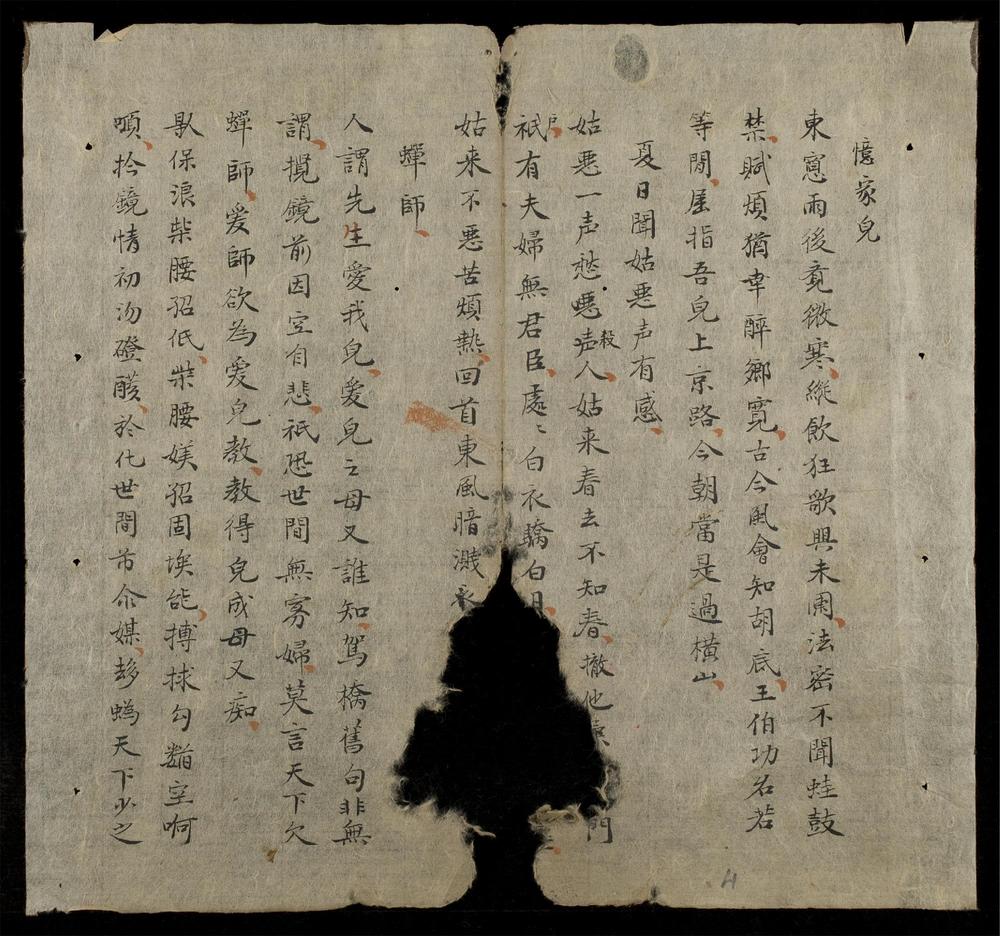 憶家兒
東窓雨後竟微寒縱飲狂歌興未闌法密不聞蛙鼓
禁賦煩猶幸醉鄉寛古今風會知胡底王伯功名若
等閒屈指吾兒上京路今朝當是過橫山
夏日聞姑悪声有感
姑悪一声愁悪声殺人姑来春去不知春撤他 門
戶祇有夫婦無君臣處〻白衣驕白日
姑来不悪苦煩熱回首東風暗濺衣
蟬師
人謂先生愛我兒愛兒之母又誰知駕橋舊句非無
謂攬鏡前因空自悲祇恐世間無寡婦莫言天下欠
蟬師愛師欲為愛兒教教得兒成母又痴
保浪柴腰招低柴腰媄招固埃能搏捄勾空啊
嗔拾鏡情初沕磴醆於化世間市命媒𨔈蜴天下少之